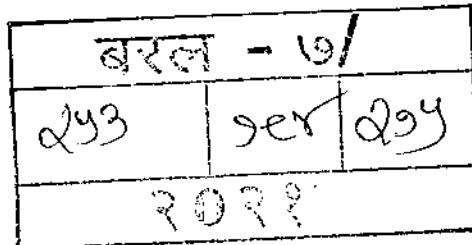 बरल - ७/
२५३ १९४ २१५
२०२१